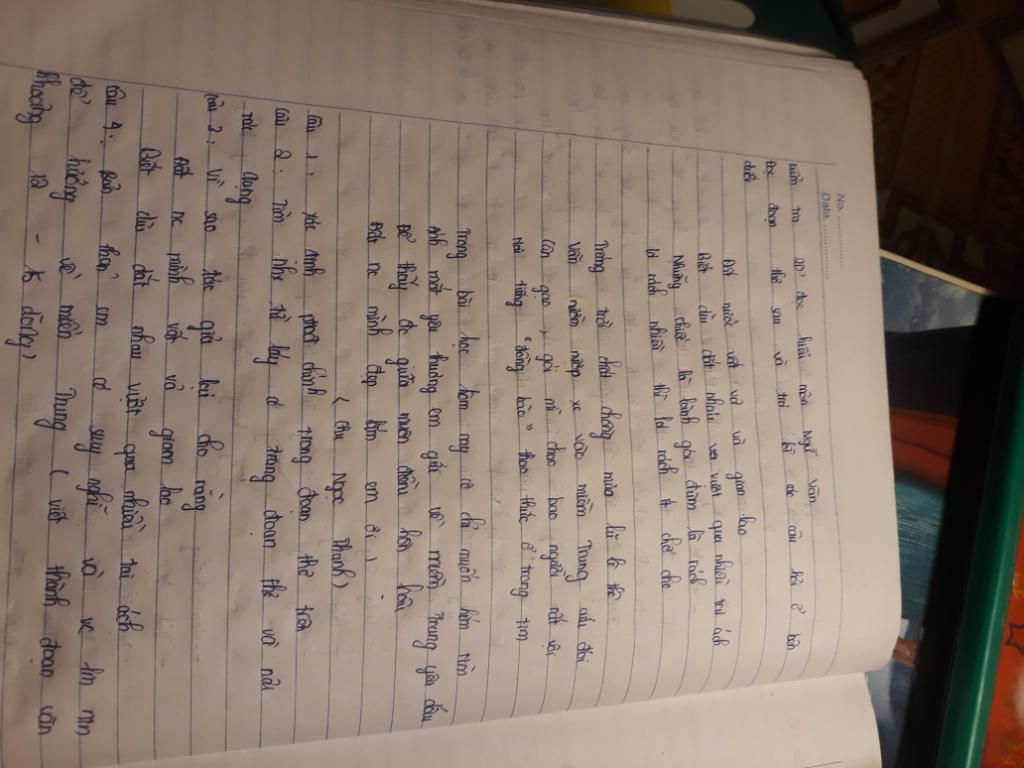 No. ................
Date. ................
kiểm tra 20' đọc hiểu môn Ngữ văn
Đọc đoạn thơ sau và trả lời các câu hỏi ở bên
dưới
Đất nước vất vả và gian lao
Biết dìu dắt nhau vượt qua nhiều tai ách
Những chiếc lá lành gói đùm lá rách
lá rách nhiều thì lá rách ít chở che
Trắng trời chưa mưa lũ lê thê
Vẫn nườm nượp xe vào miền Trung cứu đói
Cân gạo, gói mì trao bao người vất vội
Hai tiếng "đồng bào" thao thức ở trong tim
Trong bài học hôm nay cô chỉ muốn hỏi rằng
Ánh mắt yêu thương em gửi về miền Trung yêu dấu
Để thấy đc giữa muôn điều
Đất nc mình đẹp lắm em ơi,
(Chu Ngọc Thanh)
Câu 1: xác định pttđ chính trong đoạn thơ trên
Câu 2: Tìm những từ láy ở trong đoạn thơ và nêu
tác dụng
Câu 3: Vì sao tác giả lại cho rằng
Đất nc mình vất vả gian lao
Biết dìu dắt nhau vượt qua nhiều tai ách
Câu 4: Bản thân em có suy nghĩ và vc làm nn
để hướng về miền Trung (viết thành đoạn văn
khoảng 12 - 15 dòng)